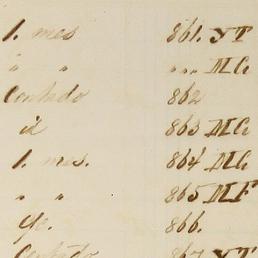 1. mes 861. YT
" " " " MG
Contado 862
id 863 MG
1. mes. 864 MG
" " 865 MF
866.
Contado 867 YT